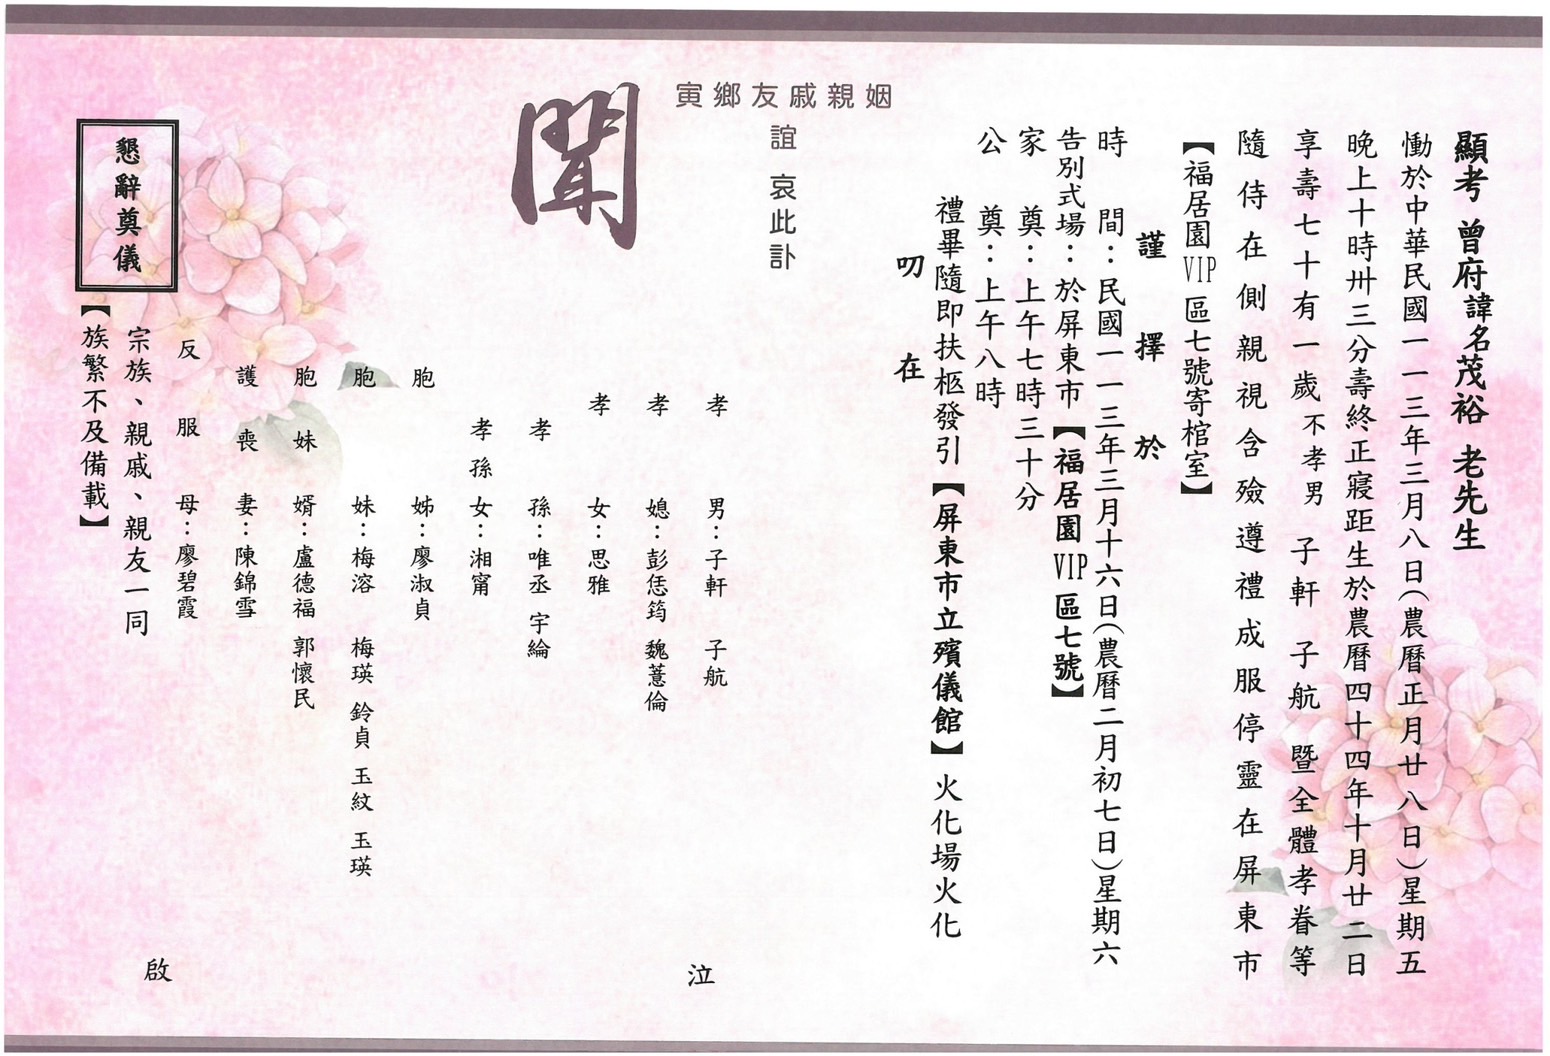 顯考 曾府諱名茂裕 老先生
慟於中華民國一一三年三月八日(農曆正月廿八日)星期五
晚上十時卅三分壽終正寢距生於農曆四十四年十月廿二日
享壽七十有一歲不孝男 子軒 子航 暨全體孝眷等
隨侍在側親視含殮遵禮成服停靈在屏東市
【福居園VIP區七號寄棺室】
謹擇於
時間：民國一一三年三月十六日(農曆二月初七日)星期六
告別式場：於屏東市【福居園VIP區七號】
家奠：上午七時三十分
公奠：上午八時
禮畢隨即扶柩發引【屏東市立殯儀館】火化場火化
叨在
姻親戚友鄉寅
誼 哀此訃
聞
孝男：子軒 子航
孝媳：彭恁筠 魏薏倫
孝女：思雅
孝孫：唯丞 宇綸
孝孫女：湘甯
胞姊：廖淑貞
胞妹：梅溶 梅瑛 鈴貞 玉紋 玉瑛
胞妹婿：盧德福 郭懷民
護喪妻：陳錦雪
反服母：廖碧霞
泣
宗族、親戚、親友一同
啟
【族繁不及備載】
懇辭奠儀